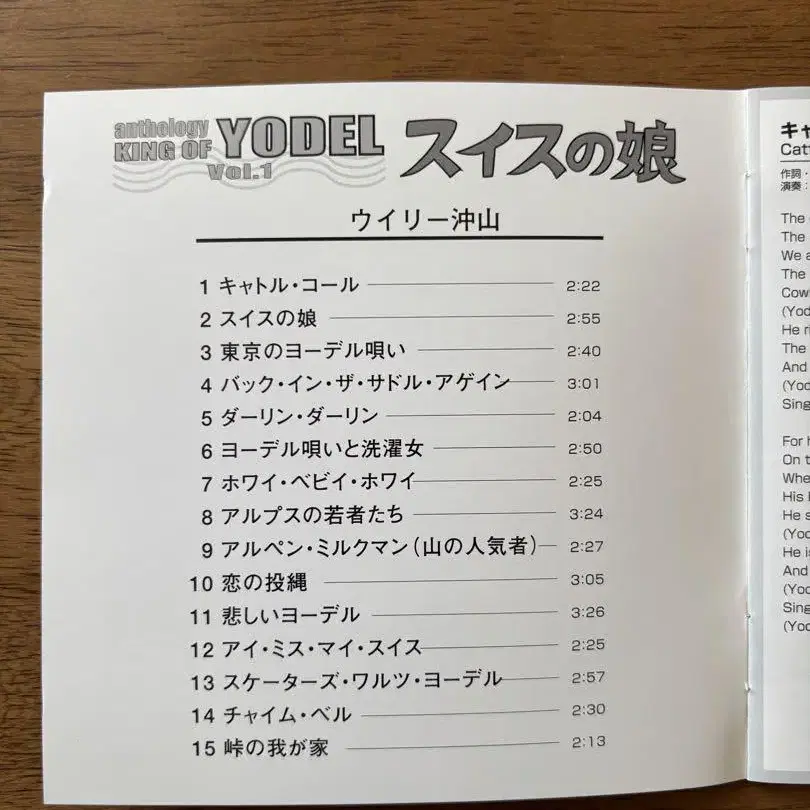 anthology
KING OF YODEL
Vol.1
スイスの娘
ウイリー沖山
1 キャトル・コール 2:22
2 スイスの娘 2:55
3 東京のヨーデル唄い 2:40
4 バック・イン・ザ・サドル・アゲイン 3:01
5 ダーリン・ダーリン 2:04
6 ヨーデル唄いと洗濯女 2:50
7 ホワイ・ベビイ・ホワイ 2:25
8 アルプスの若者たち 3:24
9 アルペン・ミルクマン(山の人気者) 2:27
10 恋の投縄 3:05
11 悲しいヨーデル 3:26
12 アイ・ミス・マイ・スイス 2:25
13 スケーターズ・ワルツ・ヨーデル 2:57
14 チャイム・ベル 2:30
15 峠の我が家 2:13
キャ
Catt
作詞・
演奏:
The
The
We a
The
Cow
(Yod
He ri
The
And
(Yoc
Sing
For h
On t
Whe
His
He s
(Yoc
He is
And
(Yoc
Sing
(Yoc